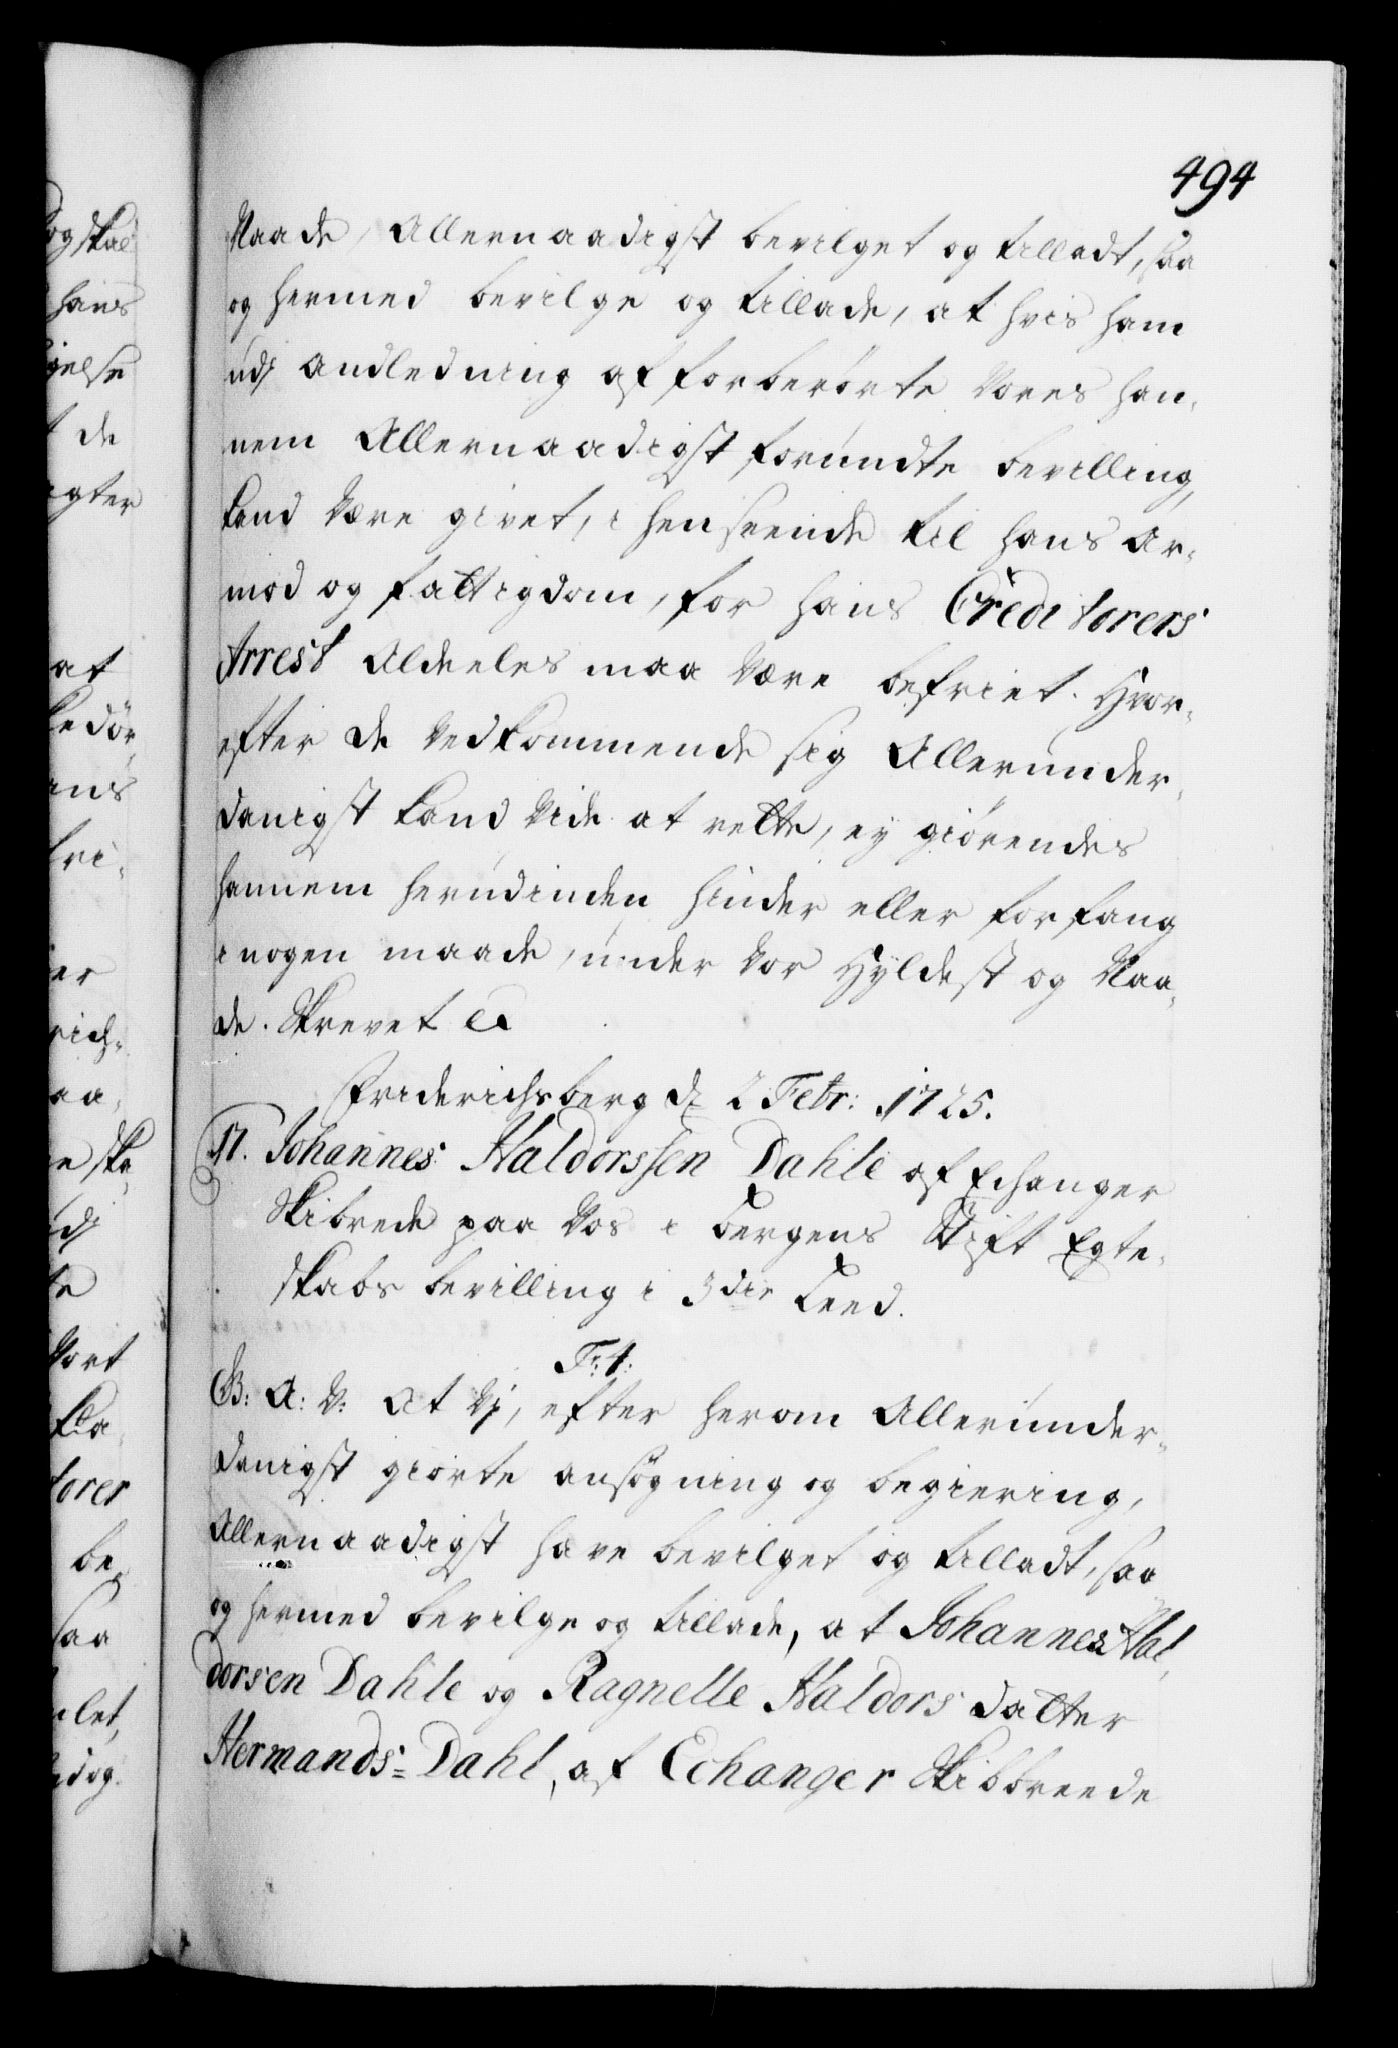 494
Naade, Allernaadigst bevilget og tilladt, saa
og hermed bevilge og tillade, at hvis ham
udj andledning af forberørte Vores han,
nem Allernaadigst forundte bevilling,
kand være givet, i henseende til hans Ar-
mod og fattigdom, for hans Creditorers
Arrest Aldeeles maa være befriet. Hvor-
efter de Vedkommende sig Allerunder,
danigst kand Vide at rette, ey giørendes
hannem herudinden hinder eller forfang
i nogen maade, under Vor Hyldest og Naa,
de. Skrevet &
Friderichsberg d. 2 Febr: 1725.
17. Johannes Haldorssen Dahle af Echanger
Skibrede paa Vos i Bergens Stift Egte,
skabs bevilling i 3die Leed.
F: 4:
G: A: V: At Vj, efter herom Allerunder-
danigst giorte ansøgning og begiering,
Allernaadigst have bevilget og tilladt, saa
og hermed bevilge og tillade, at Johannes Hal,
dorsen Dahle og Ragnelle Haldors datter
Hermands=Dahl, af Echanger Skibbreede